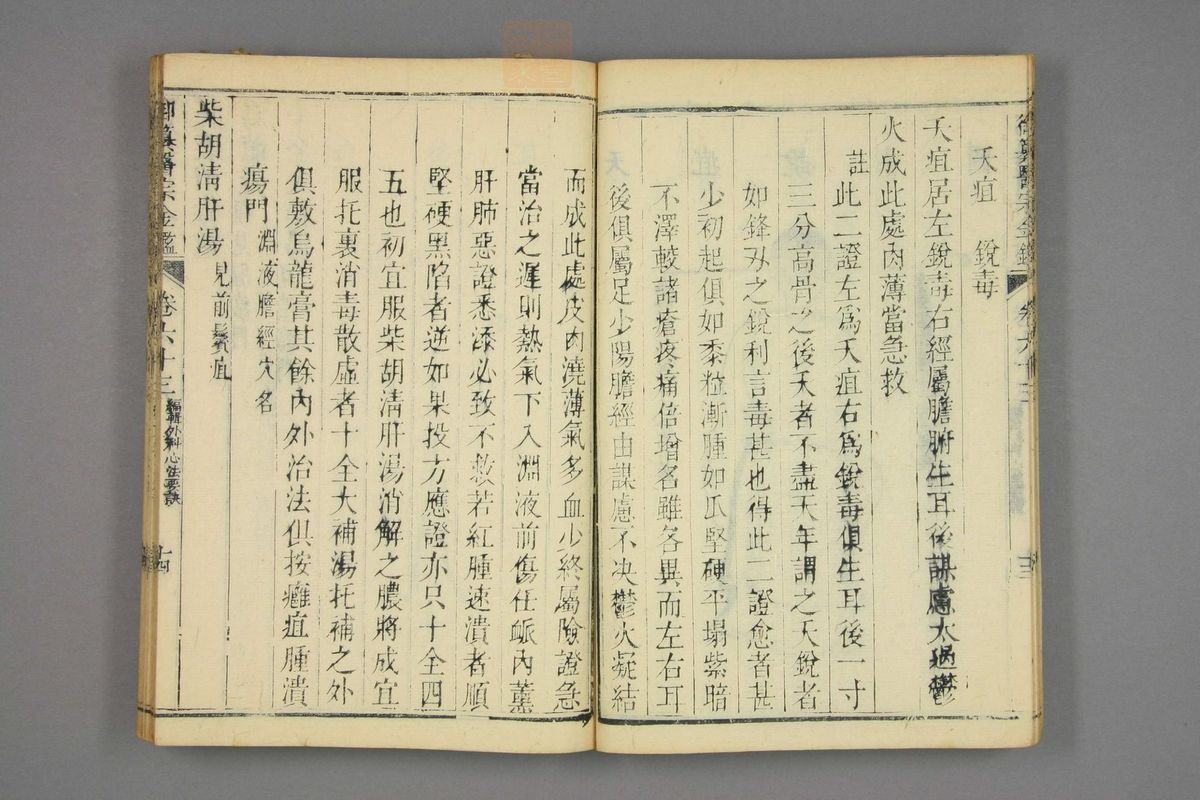 御纂醫宗金鑑 卷六十三 十三
夭疽 銳毒
夭疽居左銳毒右經屬膽腑生耳後謀慮太過鬱
火成此處肉薄當急救
註此二證左爲夭疽右爲銳毒俱生耳後一寸
三分高骨之後夭者不盡天年謂之夭銳者
如鋒刃之銳利言毒甚也得此二證愈者甚
少初起俱如黍粒漸腫如瓜堅硬平塌紫暗
不澤較諸瘡疼痛倍增名雖各異而左右耳
後俱屬足少陽膽經由謀慮不決鬱火凝結
而成此處皮肉澆薄氣多血少終屬險證急
當治之遲則熱氣下入淵液前傷任脈內薰
肝肺惡證悉添必致不救若紅腫速潰者順
堅硬黑陷者逆如果投方應證亦只十全四
五也初宜服柴胡淸肝湯消解之膿將成宜
服托裏消毒散虛者十全大補湯托補之外
俱敷烏龍膏其餘內外治法俱按癰疽腫潰
瘍門 淵液膽經穴名
柴胡淸肝湯 見前鬢疽
御纂醫宗金鑑 卷六十三 編輯外科心法要訣 十四